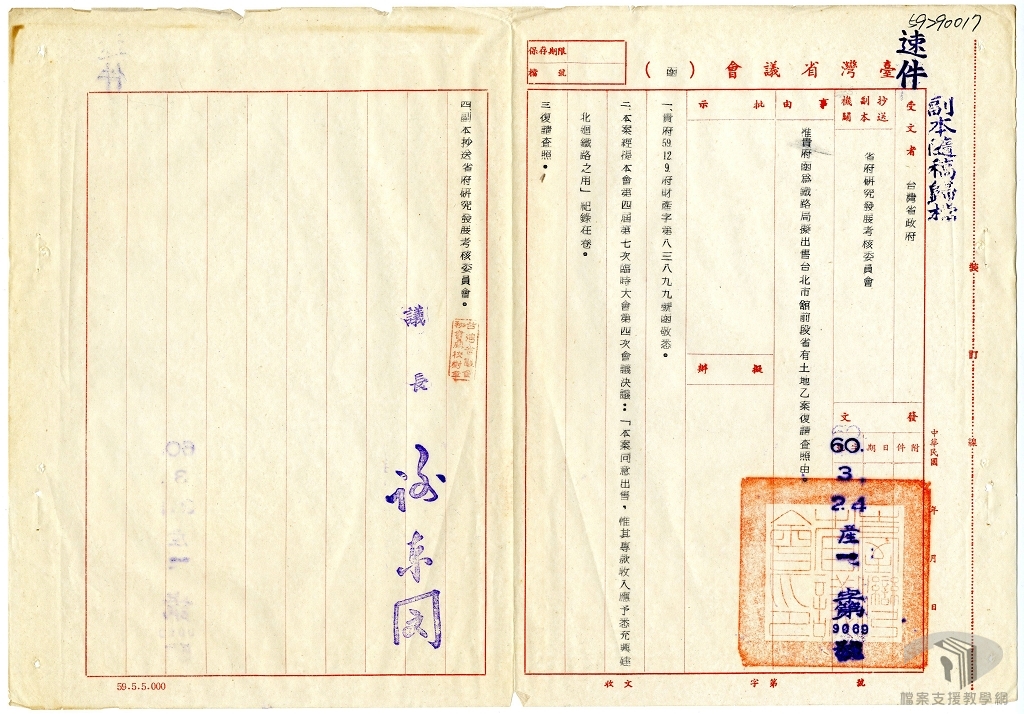 59290017
速件
副本隨稿歸檔
裝訂線
臺灣省議會(函)
保存期限
檔號
受文者 台灣省政府
抄送副本機關 省府研究發展考核委員會
發文
附件 日期 字號
中華民國 年 月 日
60. 3. 24
產一字第9069號
事由 准貴府函為鐵路局擬出售台北市館前段省有土地乙案復請查照由。
批示
擬辦
一、貴府59.12.9.府財產字第八三八九九號函敬悉。
二、本案經提本會第四屆第七次臨時大會第四次會議決議:「本案同意出售,惟其專款收入應予悉充興建
北迴鐵路之用」紀錄在卷。
三、復請查照。
四、副本抄送省府研究發展考核委員會。
議長
收文 字第 號
59.5.5.000
檔案支援教學網